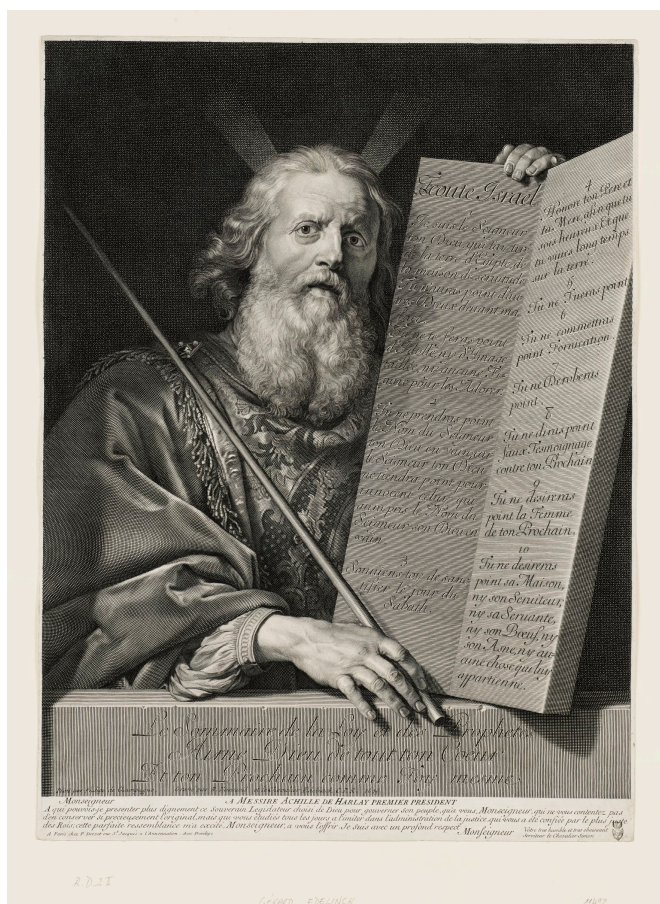 Ecoute Israel
1
Je suis le Seigneur
ton Dieu qui t'ay tiré
de la terre d'Egipte de
la maison de seruitude
Tu n'auras point d'au-
tres Dieux deuant moy.
Tu ne feras point
d'Idolle ny d'Image
taillée ny aucune Fi-
gure pour les Adorer.
2
Tu ne prendras point
le Nom du Seigneur
ton Dieu en vain, car
le Seigneur ton Dieu
ne tiendra point pour
innocent celuy qui
aura pris le Nom du
Seigneur son Dieu en
vain.
3
Souuiens toy de sanc-
tifier le jour du
Sabath.
4
Honore ton Pere et
ta Mere, afin que tu
sois heureux Et que
tu viues long temps
sur la terre.
5
Tu ne Tueras point
6
Tu ne commettras
point Fornication.
7
Tu ne Deroberas
point.
8
Tu ne diras point
faux Tesmoignage
contre ton Prochain
9
Tu ne desireras
point la Femme
de ton Prochain.
10
Tu ne desireras
point sa Maison,
ny son Seruiteur,
ny sa Seruante,
ny son Bœuf, ny
son Asne, ny au-
cune chose qui luy
appartienne.
Le Sommaire de la Loy et des Prophetes
Aime Dieu de tout ton Coeur
Et ton Prochain comme Toy mesme.
Monseigneur A MESSIRE ACHILLE DE HARLAY PREMIER PRESIDENT
A qui pouvois-je presenter plus dignement ce Souverain Legislateur choisi de Dieu pour gouverner son peuple, qu'a vous, Monseigneur, qui ne vous contentez pas
d'en conserver si precieusement l'original, mais qui vous étudiez tous les jours a l'imiter dans l'administration de la justice qui vous a eté confiée par le plus juste
des Rois; cette parfaite ressemblance m'a excité, Monseigneur, a vous l'offrir Je suis avec un profond respect Monseigneur
Votre tres humble et tres obeissant
Serviteur le Chevalier
A Paris chez P. Drevet rue St. Jacques a l'Annonciation
R.D. 2
GÉRARD EDELINCK